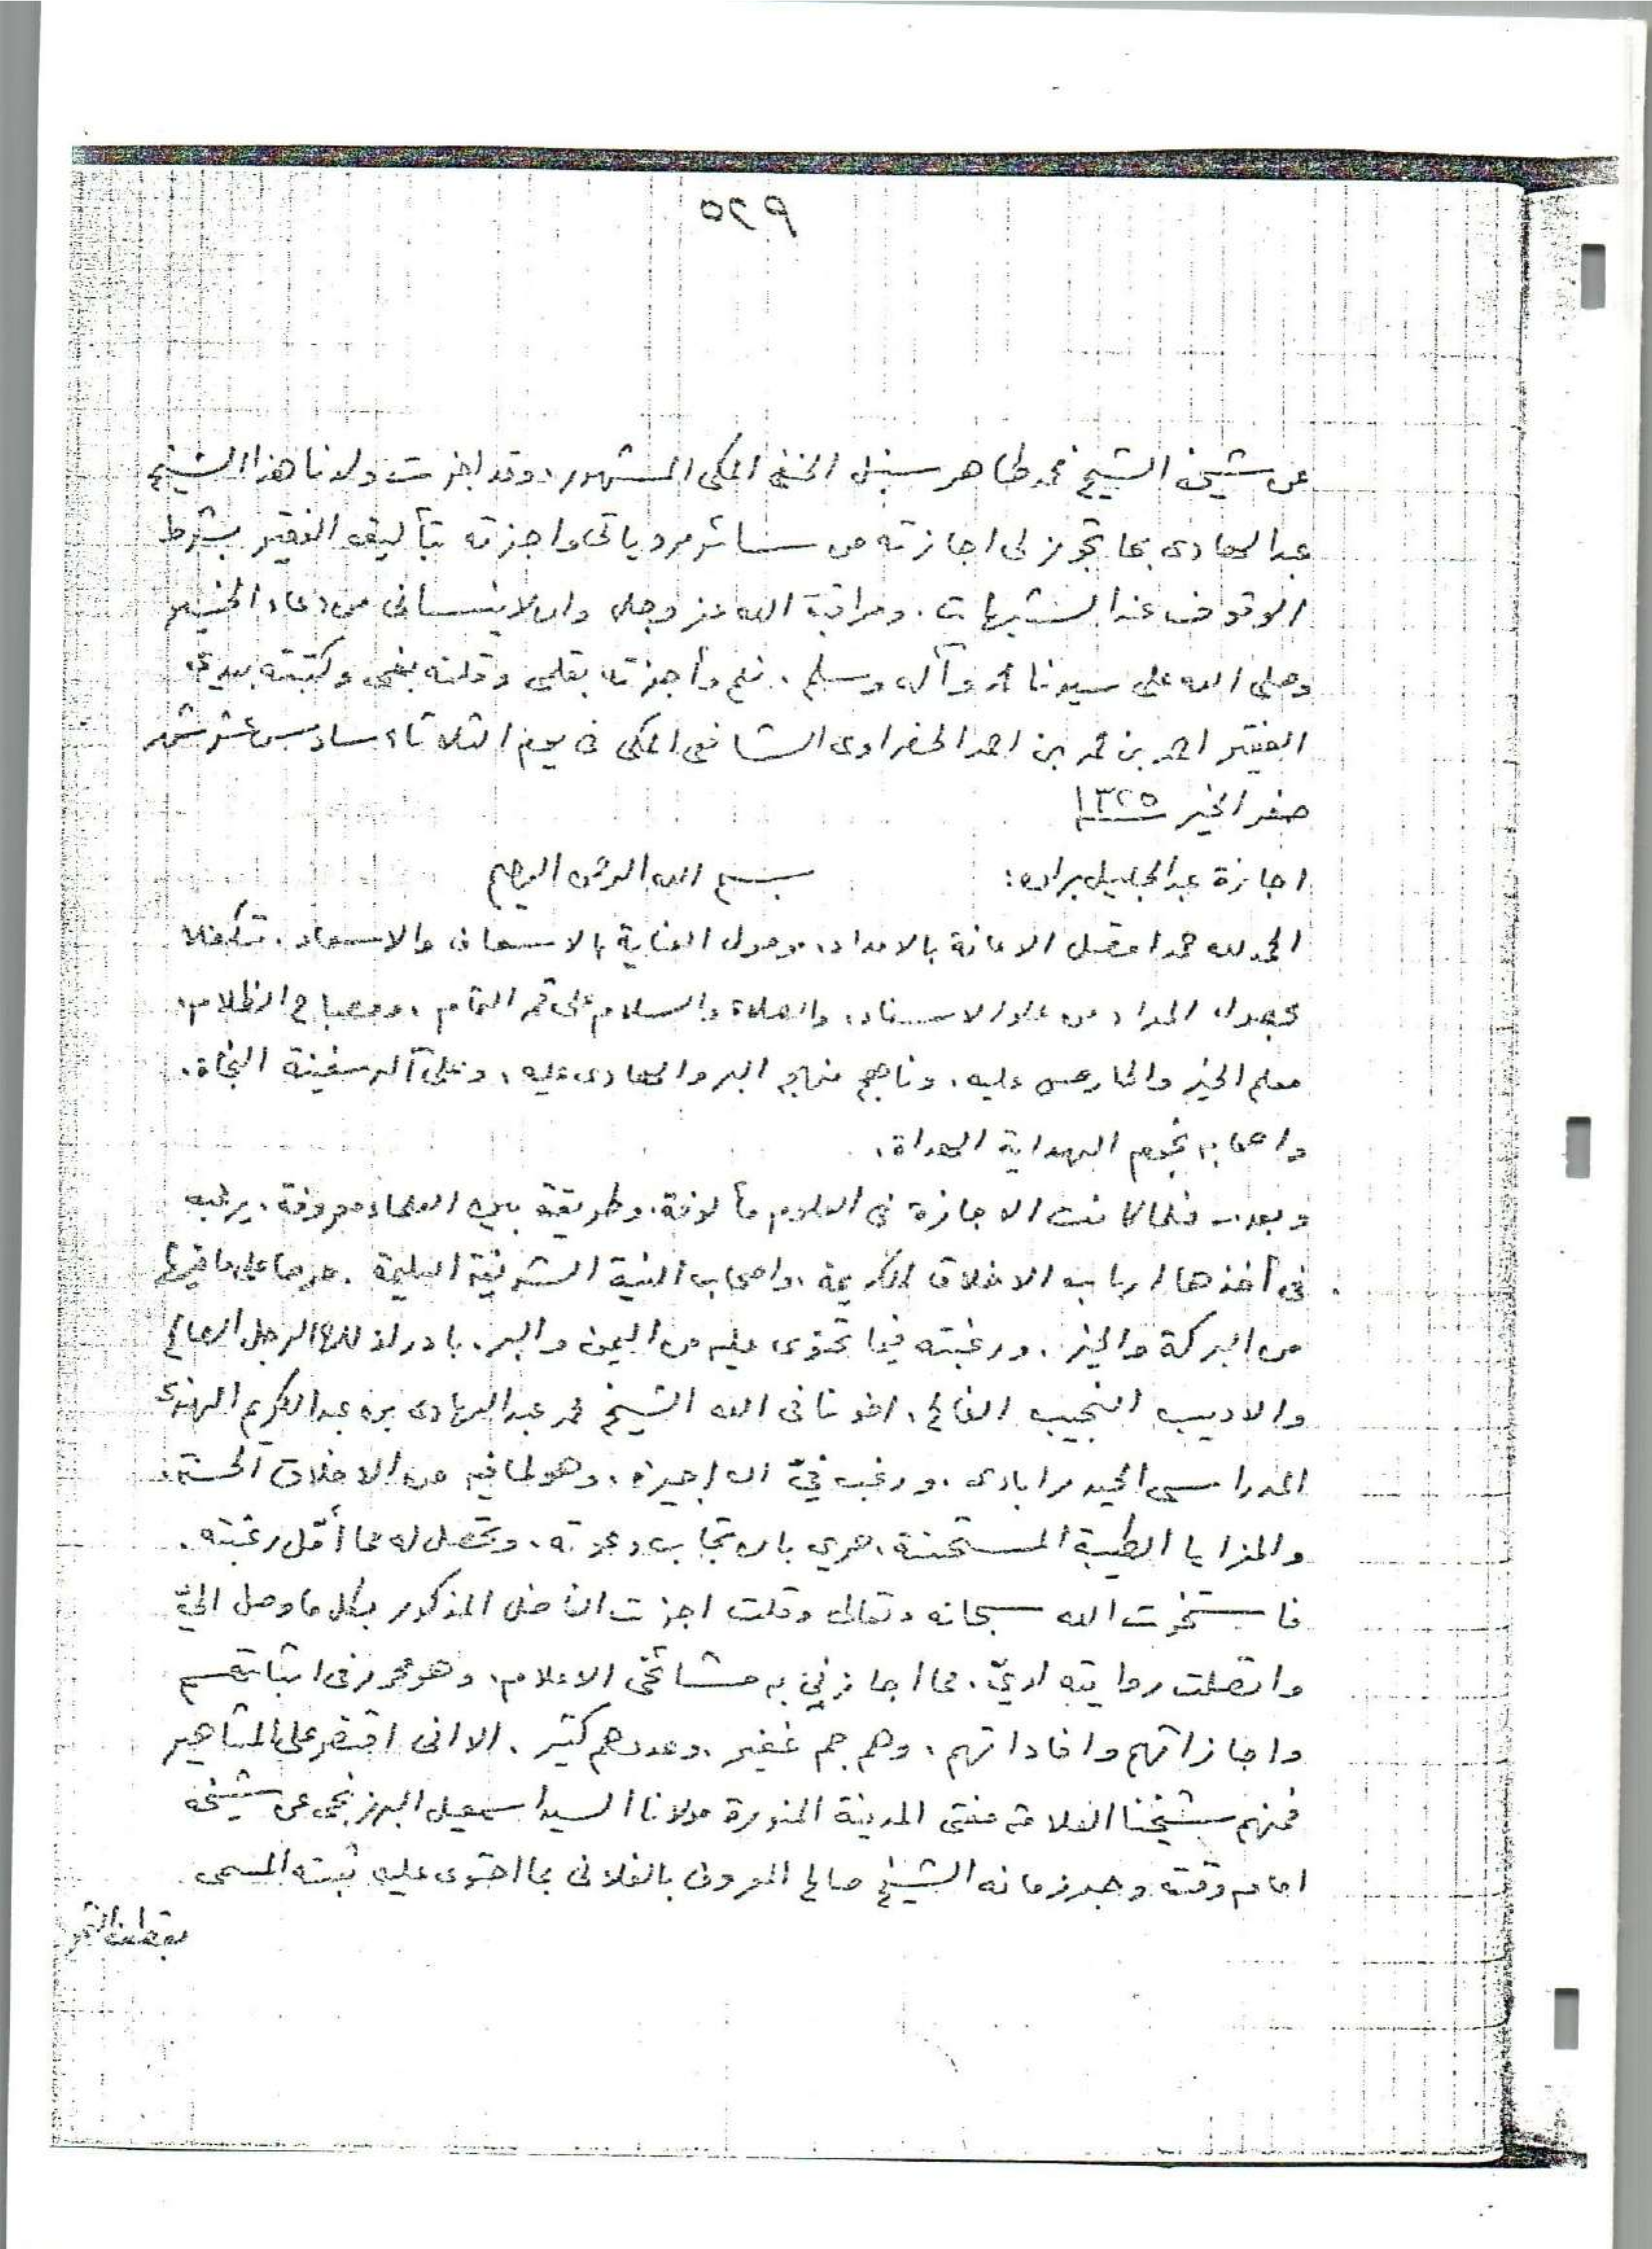 ٥٢٩
عن شيخه الشيخ محمد طاهر سنبل الحنفي المكي المشهور، وقد اجزت ولدنا هذا الشيخ
عبد الهادى بما تجوز لى اجازته من سائر مروياتى واجزته بتأليف الفقير بشرط
الوقوف عند الشبهات، ومراقبة الله عز وجل وان لا ينسانى من دعاء الخير
وصلى الله على سيدنا محمد وآله وسلم، نعم وأجزته بقلمى وقلته بفمى وكتبته بيدي
الفقير احمد بن محمد بن احمد الحضراوى الشافعى المكى فى يوم الثلاثاء سادس عشر شهر
صفر الخير ١٣٢٥
اجازة عبد الجليل براده: بسم الله الرحمن الرحيم
الحمد لله حمدا متصل الاعانة بالامداد، موصول العناية بالاسعاف والاسعاد، متكفلا
بحصول المراد من علو الاسناد، والصلاة والسلام على قمر التمام، ومصباح الظلام،
معلم الخير والحارص عليه، وناهج منهاج البر والهادى اليه، وعلى آله سفينة النجاة،
واصحابه نجوم الهداية الهداة،
وبعد .. فلما كانت الاجازة فى العلوم مألوفة، وطريقة بين العلماء معروفة، يرغب
فى أخذها ارباب الاخلاق الكريمة، واصحاب النية الشريفة السليمة، حرصا على ما فيها
من البركة والخير، ورغبته فيما تحتوى عليه من اليمن والبر، بادر لذلك الرجل الصالح
والاديب النجيب الفالح، اخونا فى الله الشيخ محمد عبد الهادى بن عبد الكريم الهندى
المدراسى الحيدرابادى، ورغب فيّ ان اجيزه، وهو لما فيه من الاخلاق الحسنة
والمزايا الطيبة المستحسنة، حري بان تجاب دعوته، وتحصل له مما أمّل رغبته،
فاستخرت الله سبحانه وتعالى وقلت اجزت الفاضل المذكور بكل ما وصل اليّ
واتصلت روايته لديّ، مما اجازني به مشائخى الاعلام، وهو محرر فى اثباتهم
واجازاتهم وافاداتهم، وهم جم غفير، وعددهم كثير، الا انى اقتصر على المشاهير
فمنهم شيخنا العلامة مفتى المدينة المنورة مولانا السيد اسمعيل البرزنجى عن شيخه
امام وقته وحبر زمانه الشيخ صالح المعروف بالفلانى بما احتوى عليه ثبته المسمى
بقطف الثمر